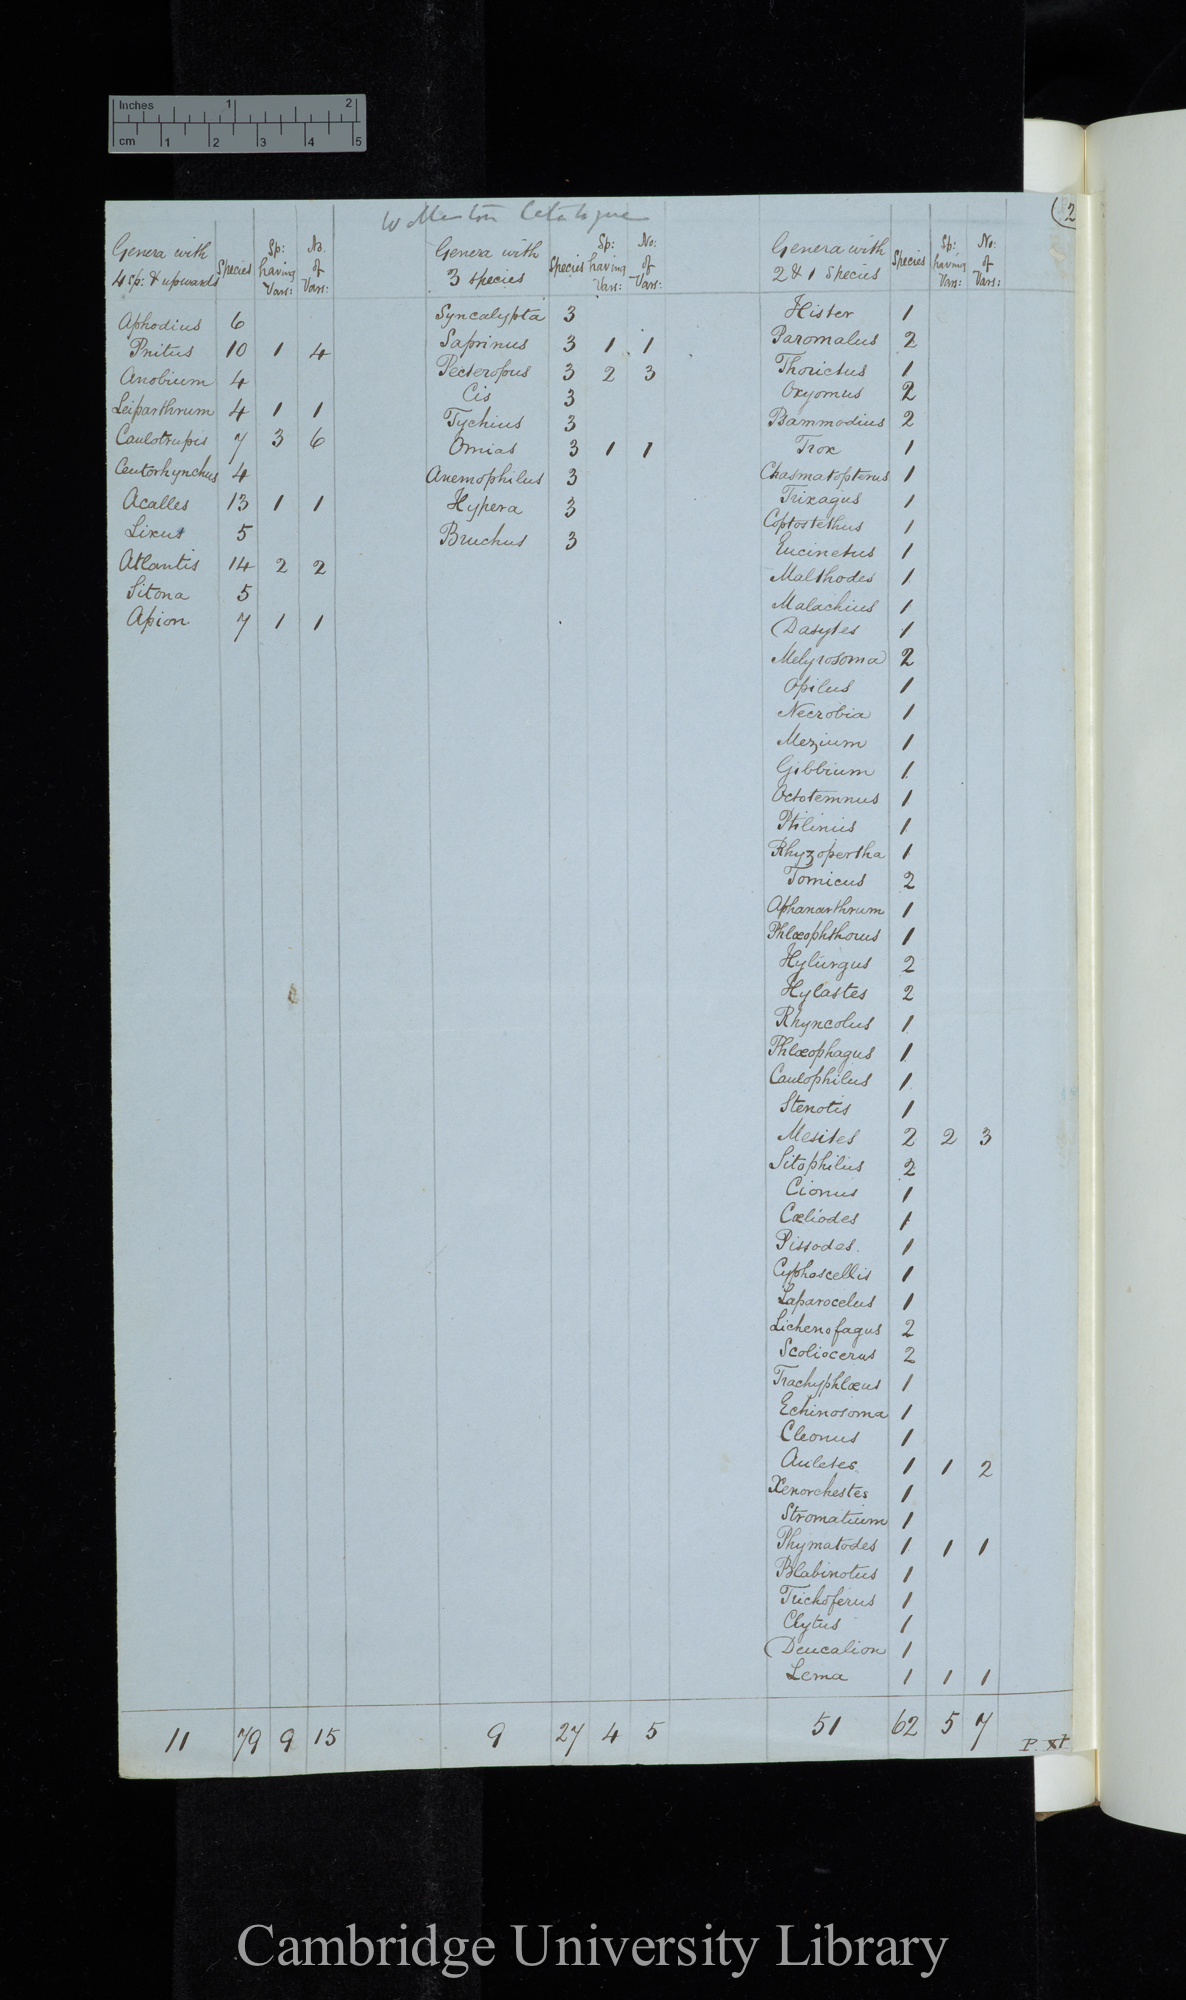 Inches 1 2
cm 1 2 3 4 5
Wollaston Catalogue
(2
Genera with 4 sp: & upwards Species Sp: having Vars: No. of Vars:
Aphodius 6
Ptinus 10 1 4
Anobium 4
Leiparthrum 4 1 1
Caulotrupis 7 3 6
Ceutorhynchus 4
Acalles 13 1 1
Lixus 5
Atlantis 14 2 2
Sitona 5
Apion 7 1 1
11 79 9 15
Genera with 3 species Species Sp: having Vars: No: of Vars:
Syncalypta 3
Saprinus 3 1 1
Pecteropus 3 2 3
Cis 3
Tychius 3
Omias 3 1 1
Anemophilus 3
Hypera 3
Bruchus 3
9 27 4 5
Genera with 2 & 1 Species Species Sp: having Vars: No: of Vars:
Hister 1
Paromalus 2
Thorictus 1
Oxyomus 2
Psammodius 2
Trox 1
Chasmatopterus 1
Trixagus 1
Coptostethus 1
Eucinetus 1
Malthodes 1
Malachius 1
Dasytes 1
Melyrosoma 2
Opilus 1
Necrobia 1
Mezium 1
Gibbium 1
Octotemnus 1
Ptilinus 1
Rhyzopertha 1
Tomicus 2
Aphanarthrum 1
Phlœophthorus 1
Hylurgus 2
Hylastes 2
Rhyncolus 1
Phlœophagus 1
Caulophilus 1
Stenotis 1
Mesites 2 2 3
Sitophilus 2
Cionus 1
Cœliodes 1
Pissodes. 1
Cyphoscellis 1
Laparocelus 1
Lichenofagus 2
Scoliocerus 2
Trachyphlœus 1
Echinosoma 1
Cleonus 1
Auletes 1 1 2
Xenorchestes 1
Stromatium 1
Phymatodes 1 1 1
Blabinotus 1
Trichoferus 1
Clytus 1
Deucalion 1
Lema 1 1 1
51 62 5 7
Cambridge University Library